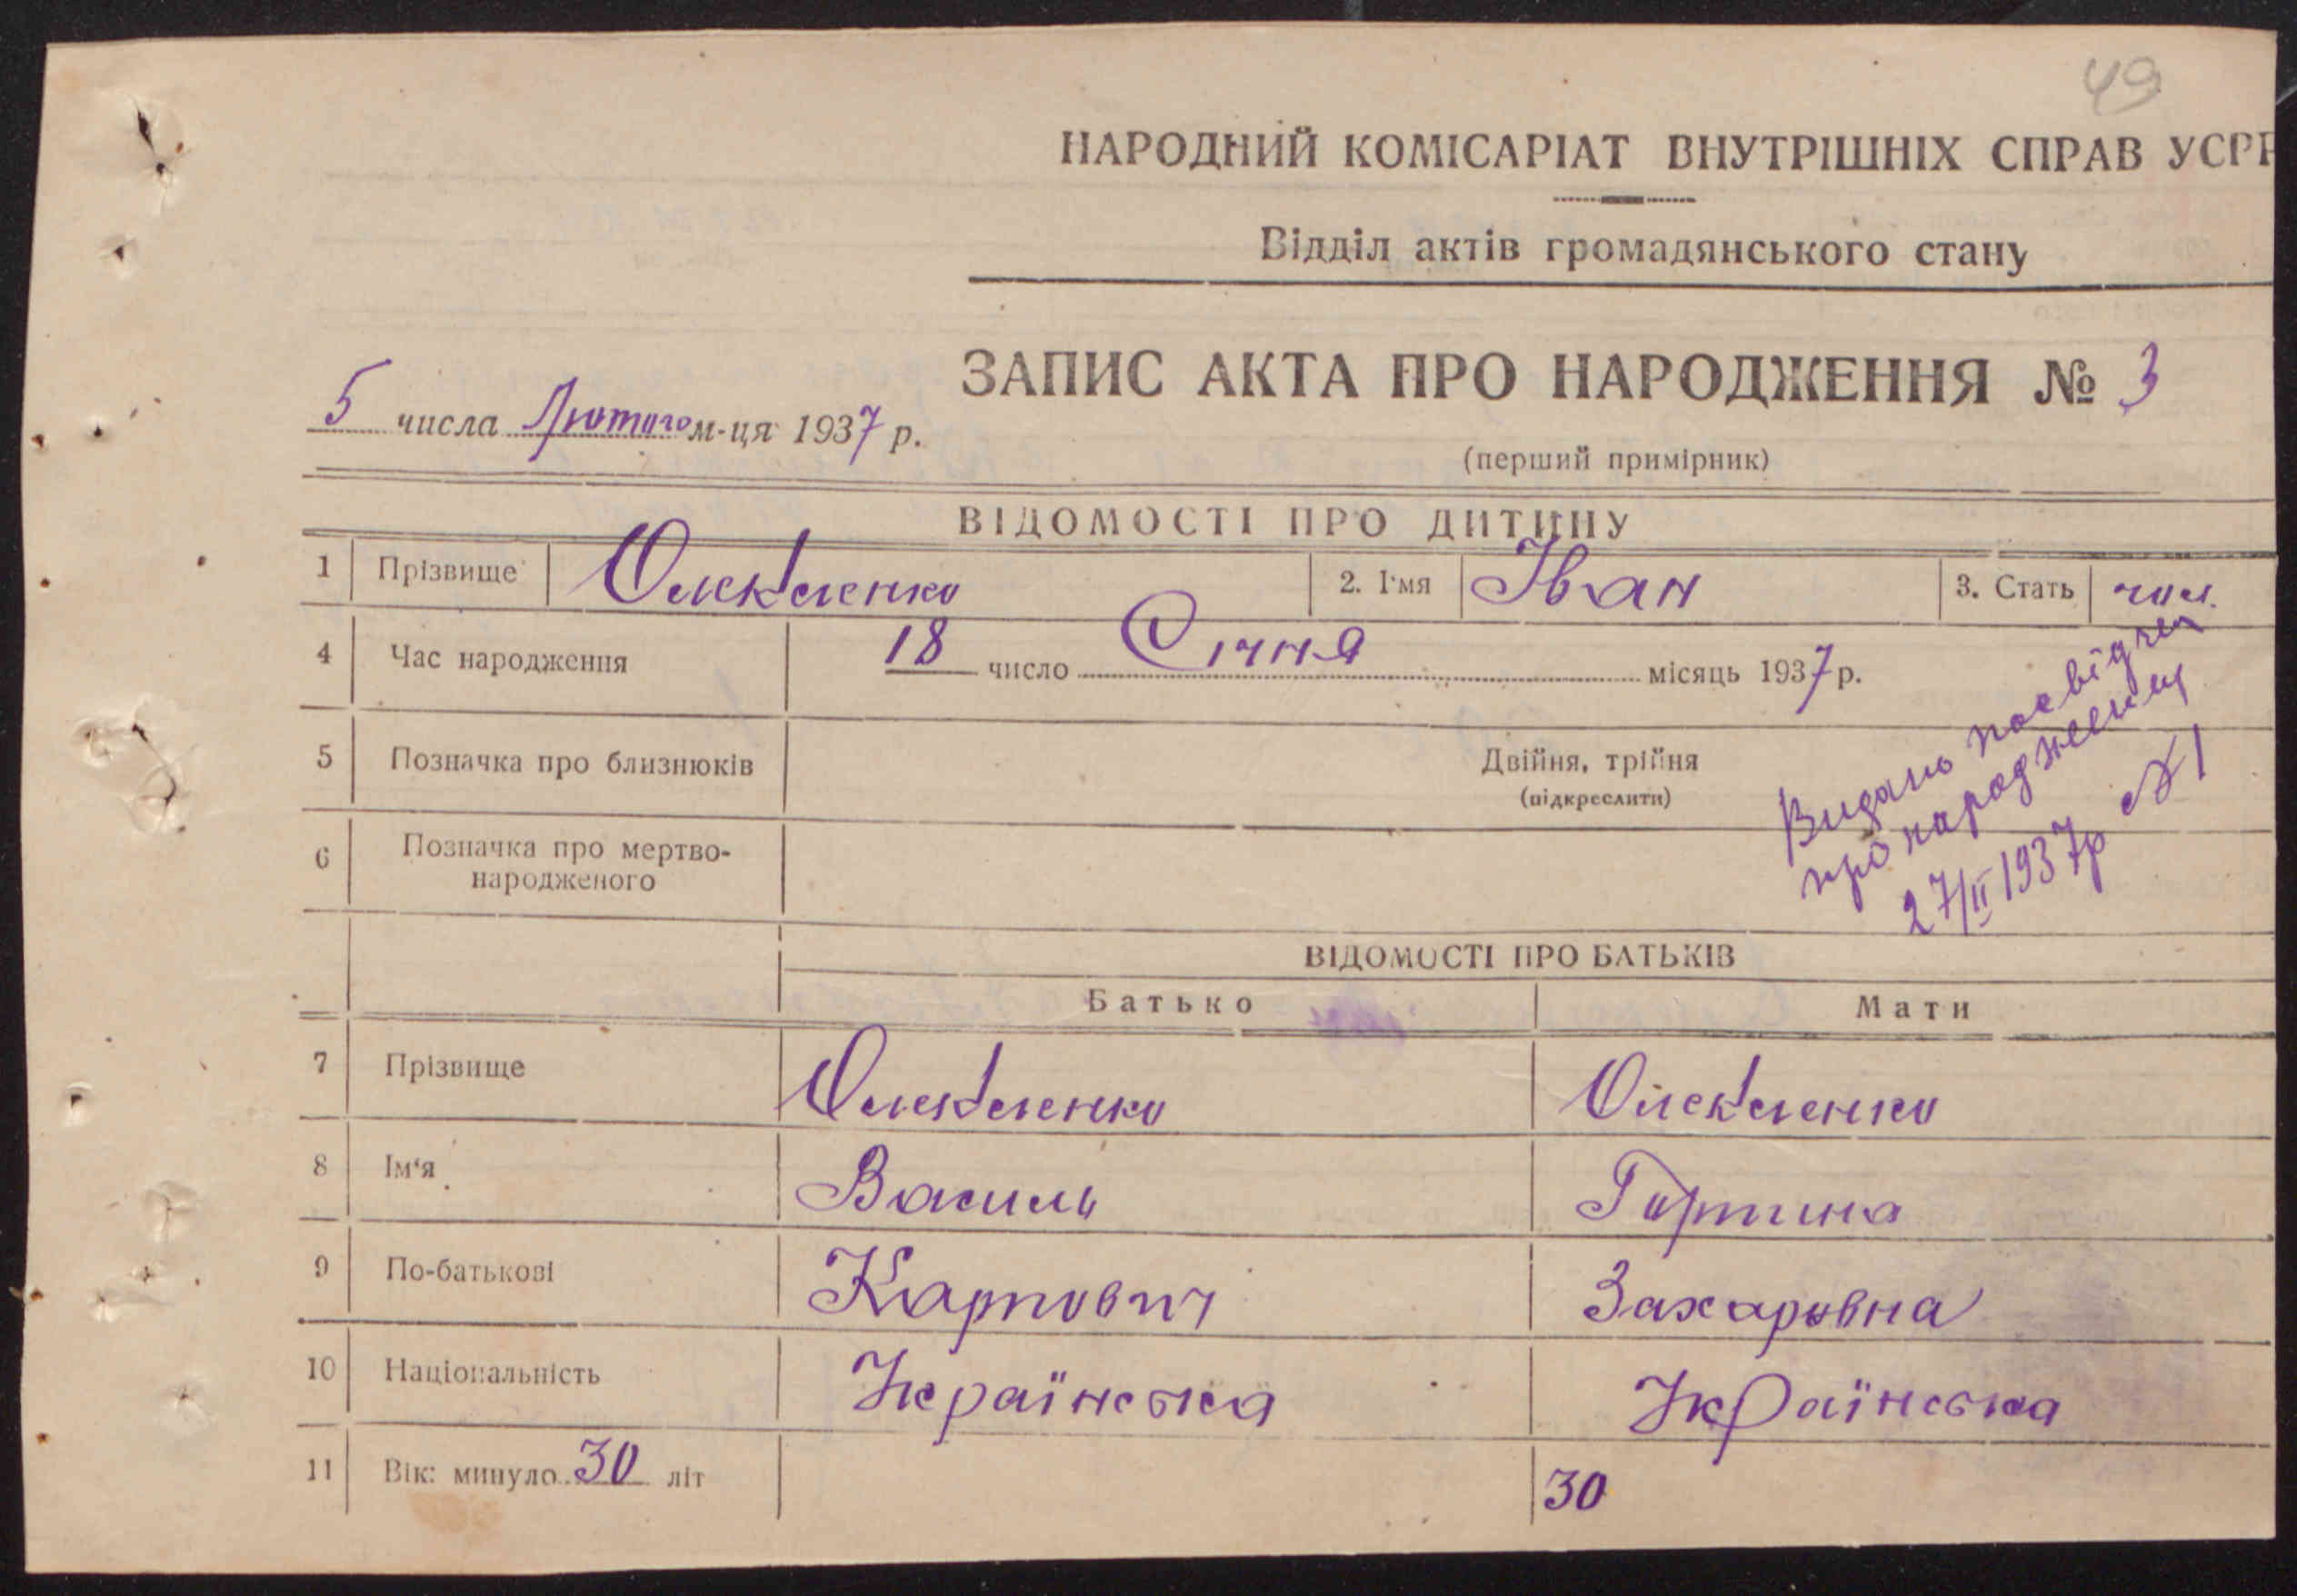 49
НАРОДНИЙ КОМІСАРІАТ ВНУТРІШНІХ СПРАВ УСРР
Відділ актів громадянського стану
ЗАПИС АКТА ПРО НАРОДЖЕННЯ № 3
5 числа Лютого м-ця 1937 р.
(перший примірник)
ВІДОМОСТІ ПРО ДИТИНУ
1 Прізвище 2. І'мя Іван 3. Стать чол.
4 Час народження 18 число Січня місяць 1937 р.
5 Позначка про близнюків Двійня, трійня
(підкреслити)
6 Позначка про мертво-
народженого
Видано посвідчен
про народження
27/II 1937р №1
ВІДОМОСТІ ПРО БАТЬКІВ
Батько Мати
7 Прізвище
8 Ім'я Василь Горпина
9 По-батькові Карпович Захаровна
10 Національність Українська Українська
11 Вік: минуло 30 літ 30